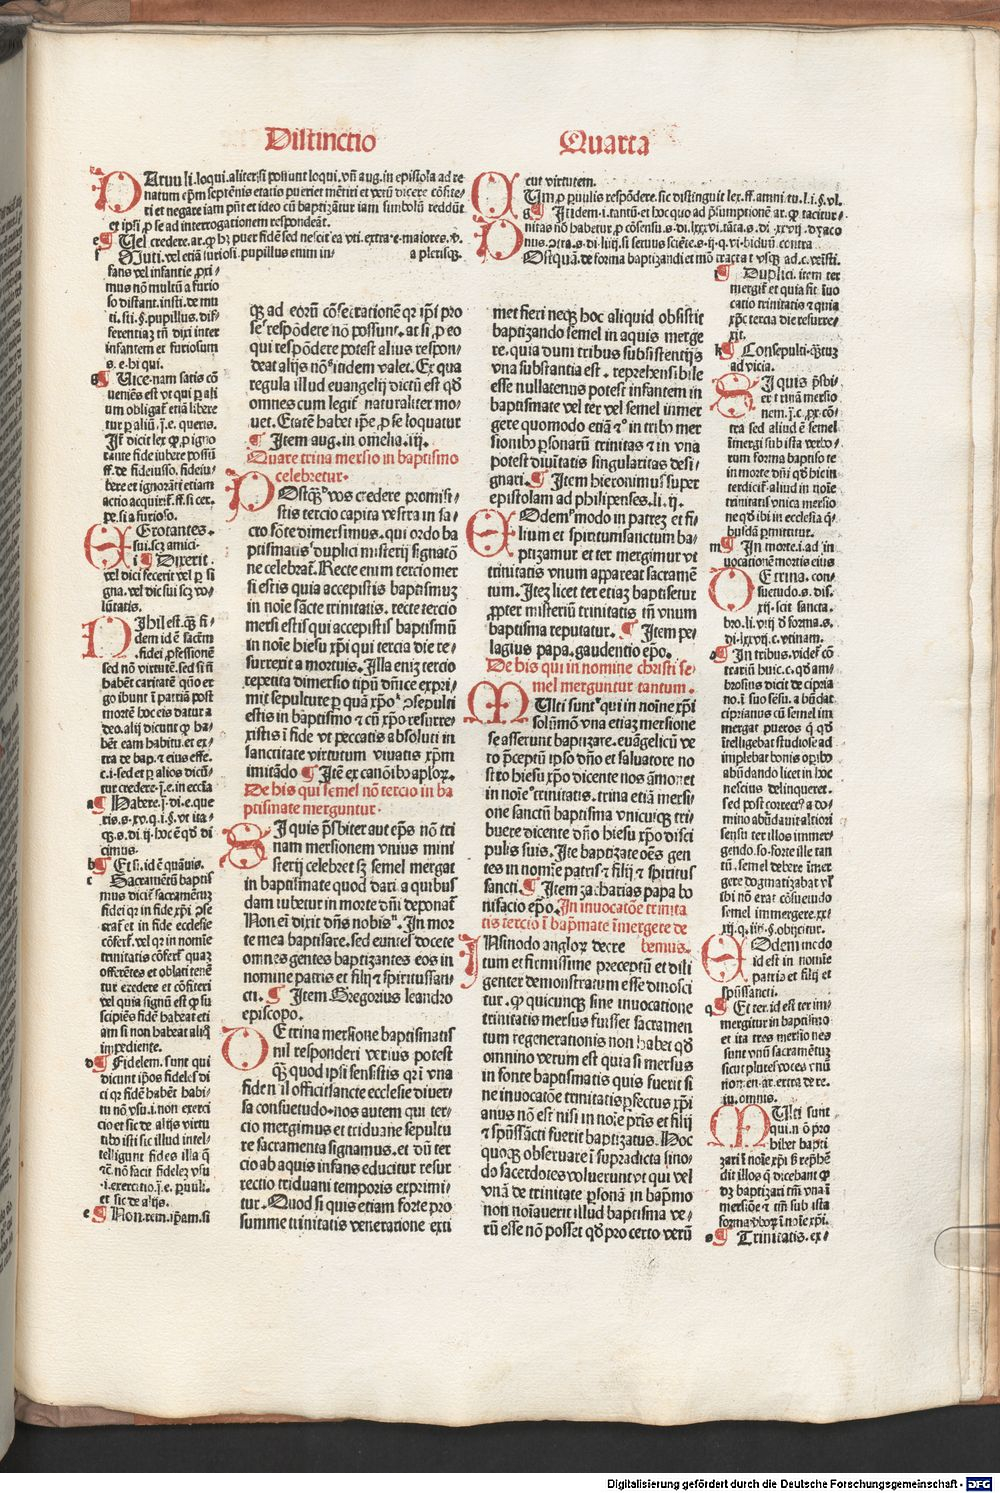 Distinctio
Quarta
PArvuli. loqui. aliter si possunt loqui. vn̄ aug. in epistola ad re
natum ep̄m septēnis etatis pueri et mētiri et verū dicere cōfite-
ri et negare iam pn̄t et ideo cū baptizātur iam simbolū reddūt
et ipsi ꝓ se ad interrogationem respondeāt.
e ¶ Uel credere. ar. ꝙ hꝫ puer fidē sed nescit ea vti. extra. e. maiores. v̄.
f Muti. vel etiā furiosi. pupillus enim in-
a plerisqꝫ.
fans vel infantie ꝓxi-
mus nō multū a furio
so distant. insti. de inu
ti. sti. §. pupillus. dif-
ferentiaꝫ tn̄ dixi inter
infantem et furiosum
s. e. hi qui.
g ¶ Uice. nam satis cō
ueniēs est vt qui ꝑ ali
um obligat᷑ etiā libere
tur ꝑ aliū. j̄. e. queris.
Itē dicit lex ꝙ ꝓ igno
rante fide iubere possū
ff. de fideiusso. fideiu-
bere et ignorāti etiam
actio acquirit᷑. ff. si cer.
pe. si a furioso.
EGrotantes.
sui. scꝫ amici.
i ¶ Dixerit.
vel dici fecerit vel ꝑ si
gna. vel dic sui scꝫ vo-
lūtatis.
NIhil est. qꝫ fi-
dem id ē sacr̄m
. fidei ꝓfessionē
sed nō virtutē. sed si n̄
habēt caritatē quō er
go ibunt ī patriā post
mortē hoc eis datur a
deo. alij dicunt ꝙ ha-
bēt eam habitu. et ex-
tra de bap. & eius effe.
c. i. sed et ꝑ alios dicū-
tur credere. j̄. e. in eccl̄ia
a ¶ Habere. j̄. di. e. que
ris. s. xv. q. i. §. vt ita-
qꝫ. s. di. ij. hoc ē qd̄ di
cimus.
b ¶ Et si. id ē quāuis.
c Sacramētū baptis
mus dicit᷑ sacramētuꝫ
fidei qꝛ in fide xp̄i ꝯse
crat᷑ et in fide ecclesie
cōfert᷑. vel qꝛ in nomīe
trinitatis cōfert᷑ quaꝫ
offerētes et oblati tenē
tur credere et cōfiteri
vel quia signū est ꝙ su
scipiēs fidē habeat eti
am si non habeat aliqd̄
impediente.
d ¶ Fidelem. sunt qui
dicunt ip̄os fideles di
ci qꝛ fidē habēt habi-
tu nō vsu. i. non exerci
cio et sic de alijs virtu
tibꝰ isti sic illud intel-
telligunt fides illa q̄
&c̄ nō facit fidelez vsu
. i. exercitio. j̄. e. ꝑuuli.
et sic de alijs.
e ¶ Non rem ip̄am. si
qꝫ ad eorū cōsecrationē qꝛ ip̄i ꝓ
se respōdere nō possunt. at si ꝓ eo
qui respōdere potest alius respon-
deat alijs nō itidem valet. Ex qua
regula illud euangelij dictū est qd̄
omnes cum legit᷑ naturaliter mo-
uet. Etatē habet ip̄e ꝓ se loquatur
¶ Item aug. in omelia. iij.
Quare trina mersio in baptismo
celebretur.
POstqꝫ vos credere promisi-
stis tercio capita vestra in sa-
cro fōte dimersimus. qui ordo ba
ptismatis duplici misterij signatō
ne celebrat᷑. Recte enim tercio mer
si estis quia accepistis baptismuꝫ
in noīe sācte trinitatis. recte tercio
mersi estis qui accepistis baptismū
in noīe hiesu xp̄i qui tercia die re-
surrexit a mortuis. Illa eniꝫ tercio
repetita dimersio tipū dn̄ice expri-
mit sepulture ꝑ quā xp̄o ꝯsepulti
estis in baptismo & cū xp̄o resurre-
xistis ī fide vt peccatis absoluti in
sanctitate virtutum viuatis xp̄m
imitādo ¶ Itē ex canōibꝰ aplorꝫ.
De his qui semel nō tercio in ba
ptismate merguntur.
SI quis p̄sbiter aut ep̄s nō tri
nam mersionem vnius mini
sterij celebret sꝫ semel mergat
in baptismate quod dari a quibus
dam iubetur in morte dn̄i deponat᷑
Non eī dixit dn̄s nobis. In mor
te mea baptisare. sed euntes docete
omnes gentes baptizantes eos in
nomine patris et filij & spiritussan
cti. ¶ Item Gregorius leandro
episcopo.
DE trina mersione baptismatis
nil responderi verius potest
qꝫ quod ipsi sensistis qꝛ ī vna
fide nil officit sancte ecclesie diuer-
sa consuetudo. nos autem qui ter-
cio mergimus et triduane sepultu
re sacramenta signamus. et dū ter
cio ab aquis infans educitur resur
rectio triduani temporis exprimi-
tur. Quod si quis etiam forte pro
summe trinitatis veneratione exti
cut virtutem.
QUm ꝓ ꝑuulis respōdere. sic distinguit lex. ff. āmni. tu. l. i. §. vl.
g ¶ Itidem. i. tantū. et hoc quo ad p̄sumptionē ar. ꝙ tacitur-
nitas nō habetur ꝓ cōsensu. s. di. lxxxvi. tāta. s. di. xxvij. dyaco
nus. ꝯtra. s. di. liiij. si seruus sciēte. s. ij. q. vi. biduū. contra
POstquā. de forma baptizandi et mō tractat vsqꝫ ad. c. veīsti.
met fieri necqꝫ hoc aliquid obsistit
baptizando semel in aquis merge
re. quia dum tribus subsistentijs
vna substantia est. reprehensibile
esse nullatenus potest infantem in
baptismate vel ter vel semel inmer
gere quomodo etiā & in tribꝰ mer
sionibꝰ ꝑsonarū trinitas & in vna
potest diuītatis singularitas desi-
gnari. ¶ Item hieronimus super
epistolam ad philipenses. li. ij.
EOdem modo in patreꝫ et fi-
lium et spiritumsanctum ba-
ptizamur et ter mergimur vt
trinitatis vnum appareat sacramē
tum. Iteꝫ licet ter etiaꝫ baptisetur
ꝓpter misteriū trinitatis tn̄ vnum
baptisma reputatur. ¶ Item pe-
lagius papa. gaudentio ep̄o.
De his qui in nomine christi se-
mel merguntur tantum.
MUlti sunt qui in noīne xp̄i
solūmō vna etiaꝫ mersione
se asserunt baptizare. euāgelicū ve
ro p̄ceptū ipso dn̄o et saluatore no
stro hiesu xp̄o dicente nos āmonet
in noīe trinitatis. trina etiā mersi-
one sanctū baptisma vnicuiqꝫ tri-
buere dicente dn̄o hiesu xp̄o disci
pulis suis. Ite baptizate oēs gen
tes in nomīe patris & filij & spiritus
sancti. ¶ Item zacharias papa bo
nifacio ep̄o. In inuocatōe trinita
tis tercio ī bap̄mate īmergere de
bemus.
IN sinodo anglorꝫ decre
tum et firmissime preceptū et dili
genter demonstratum esse dinosci
tur. ꝙ quicunqꝫ sine inuocatione
trinitatis mersus fuisset sacramen
tum regenerationis non habet qd̄
omnino verum est quia si mersus
in fonte baptismatis quis fuerit si
ne inuocatōe trinitatis ꝑfectus xp̄i
anus nō est nisi in noīe pr̄is et filij
& sp̄ussācti fuerit baptizatus. Hoc
quoqꝫ obseruare ī supradicta sino-
do sacerdotes voluerunt vt qui vel
vnā de trinitate ꝑsonā in bap̄mo
non noīauerit illud baptisma ve-
rū esse nō posset qd̄ pro certo verū
i ¶ Duplici. item ter
mergit᷑ et quia fit īuo
catio trinitatis & quia
xp̄c tercia die resurre-
xit.
k ¶ Consepulti. q̄situꝫ
ad vicia.
SI quis p̄sbi-
er trinā mersio
nem. j̄. c. ꝓx. cō-
tra sed aliud ē semel
īmergi sub ista verbo-
rum forma baptiso te
in morte dn̄i qd̄ hic in
terdicit᷑. aliud in noīe
trinitatis vnica mersio
ne qd̄ ibi in ecclesia q̄-
busdā permittitur.
m ¶ In morte. i. ad in
uocationē mortis eius
DE trina. con-
suetudo. s. dis.
xij. scit sancta.
bro. li. viij. d̄ forma. s.
di. lxxvij. c. vtinam.
o ¶ In tribus. videt᷑ cō
trariū huic. c. qd̄ am-
brosius dicit de cipria
no. ī suo sēsu. a bn̄dat
ciprianus cū semel im
mergat pueros qꝫ qd̄
ītelligebat studiose ad
implebat bonis oꝑibꝰ
abūdando licet in hoc
nescius delinqueret.
sed post correctꝰ a do-
mino abūdauit altiori
sensu ter illos immer-
gendo. so. forte ille tan
tū. semel debere īmer
gere dogmatizabat vl̓
ibi nō erat cōsuetudo
semel immergere. xx-
xij. q. iiij. §. obijcitur.
EOdem modo
id est in nomīe
patris et filij et
sp̄ussancti.
q ¶ Et ter. id est ter im-
mergitur in baptismo
et ita tres mersiones
sunt vnū sacramētuꝫ
sicut plures voces vnū
nomen. ar. extra de re.
iu. omnis.
MUlti sunt
qui. nō pro
hibet bapti
zari ī noīe xp̄i s̄ rep̄hē
dit illos q̄ dicebant ꝙ
dꝫ baptizari tm̄ vna ī
mersiōe & tm̄ sub ista
forma v̓borꝫ ī noīe xp̄i.
s ¶ Trinitatis. ex-
Digitalisierung gefördert durch die Deutsche Forschungsgemeinschaft - DFG